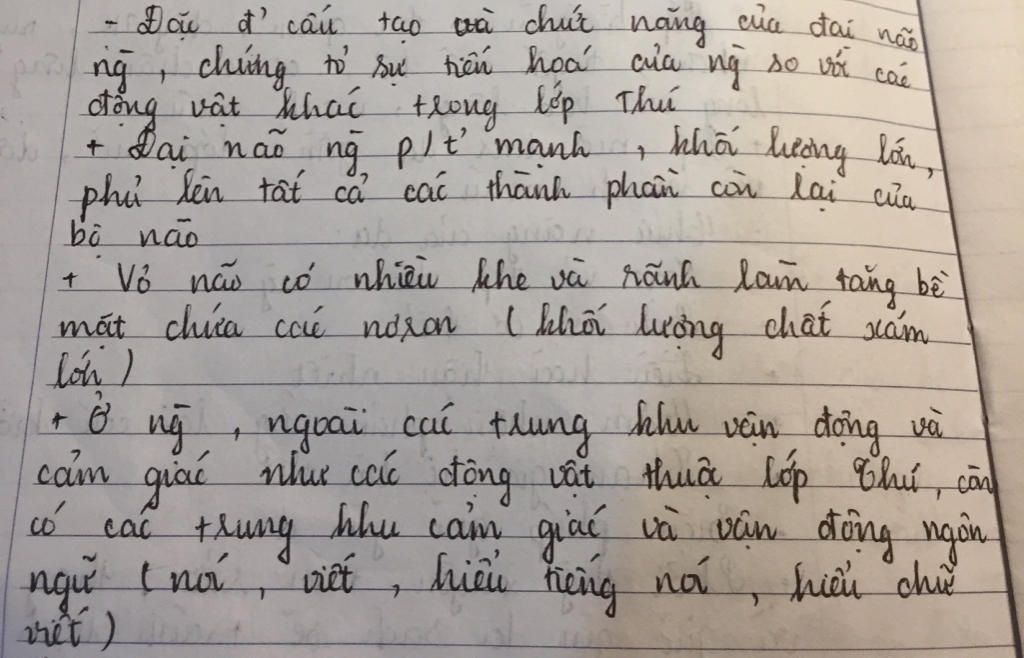 - Đặc đ' cấu tạo và chức năng của đại não
ng̃, chứng tỏ sự tiến hoá của ng̃ so với các
động vật khác trong lớp Thú
+ Đại não ng̃ p/t' mạnh, khối lượng lớn,
phủ lên tất cả các thành phần còn lại của
bộ não
+ Vỏ não có nhiều khe và rãnh làm tăng bề
mặt chứa các nơron (khối lượng chất xám
lớn)
+ Ở ng̃, ngoài các trung khu vận động và
cảm giác như các động vật thuộc lớp Thú, còn
có các trung khu cảm giác và vận động ngôn
ngữ (nói, viết, hiểu tiếng nói, hiểu chữ
viết)